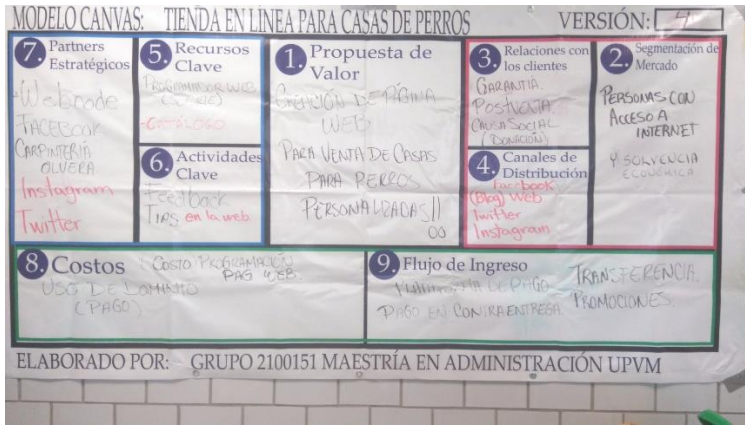 MODELO CANVAS: TIENDA EN LÍNEA PARA CASAS DE PERROS
VERSIÓN: 4
7. Partners
Estratégicos
-Webcode
FACEBOOK
CARPINTERÍA
OLVERA
Instagram
Twitter
5. Recursos
Clave
PROGRAMADOR WEB
-CATÁLOGO
6. Actividades
Clave
Feedback
TIPS en la web
1. Propuesta de
Valor
CREACIÓN DE PÁGINA
WEB
PARA VENTA DE CASAS
PARA PERROS
PERSONALIZADAS
3. Relaciones con
los clientes
GARANTIA.
POSTVENTA.
CAUSA SOCIAL
(DONACIÓN)
4. Canales de
Distribución
Facebook
(Blog) Web
Twitter
Instagram
2. Segmentación de
Mercado
PERSONAS CON
ACCESO A
INTERNET
Y SOLVENCIA
ECONÓMICA
8. Costos
COSTO PROGRAMACIÓN
PAG WEB.
USO DE DOMINIO
(PAGO)
9. Flujo de Ingreso
PLATAFORMA DE PAGO
PAGO EN CONTRAENTREGA
TRANSFERENCIA.
PROMOCIONES.
ELABORADO POR: GRUPO 2100151 MAESTRÍA EN ADMINISTRACIÓN UPVM